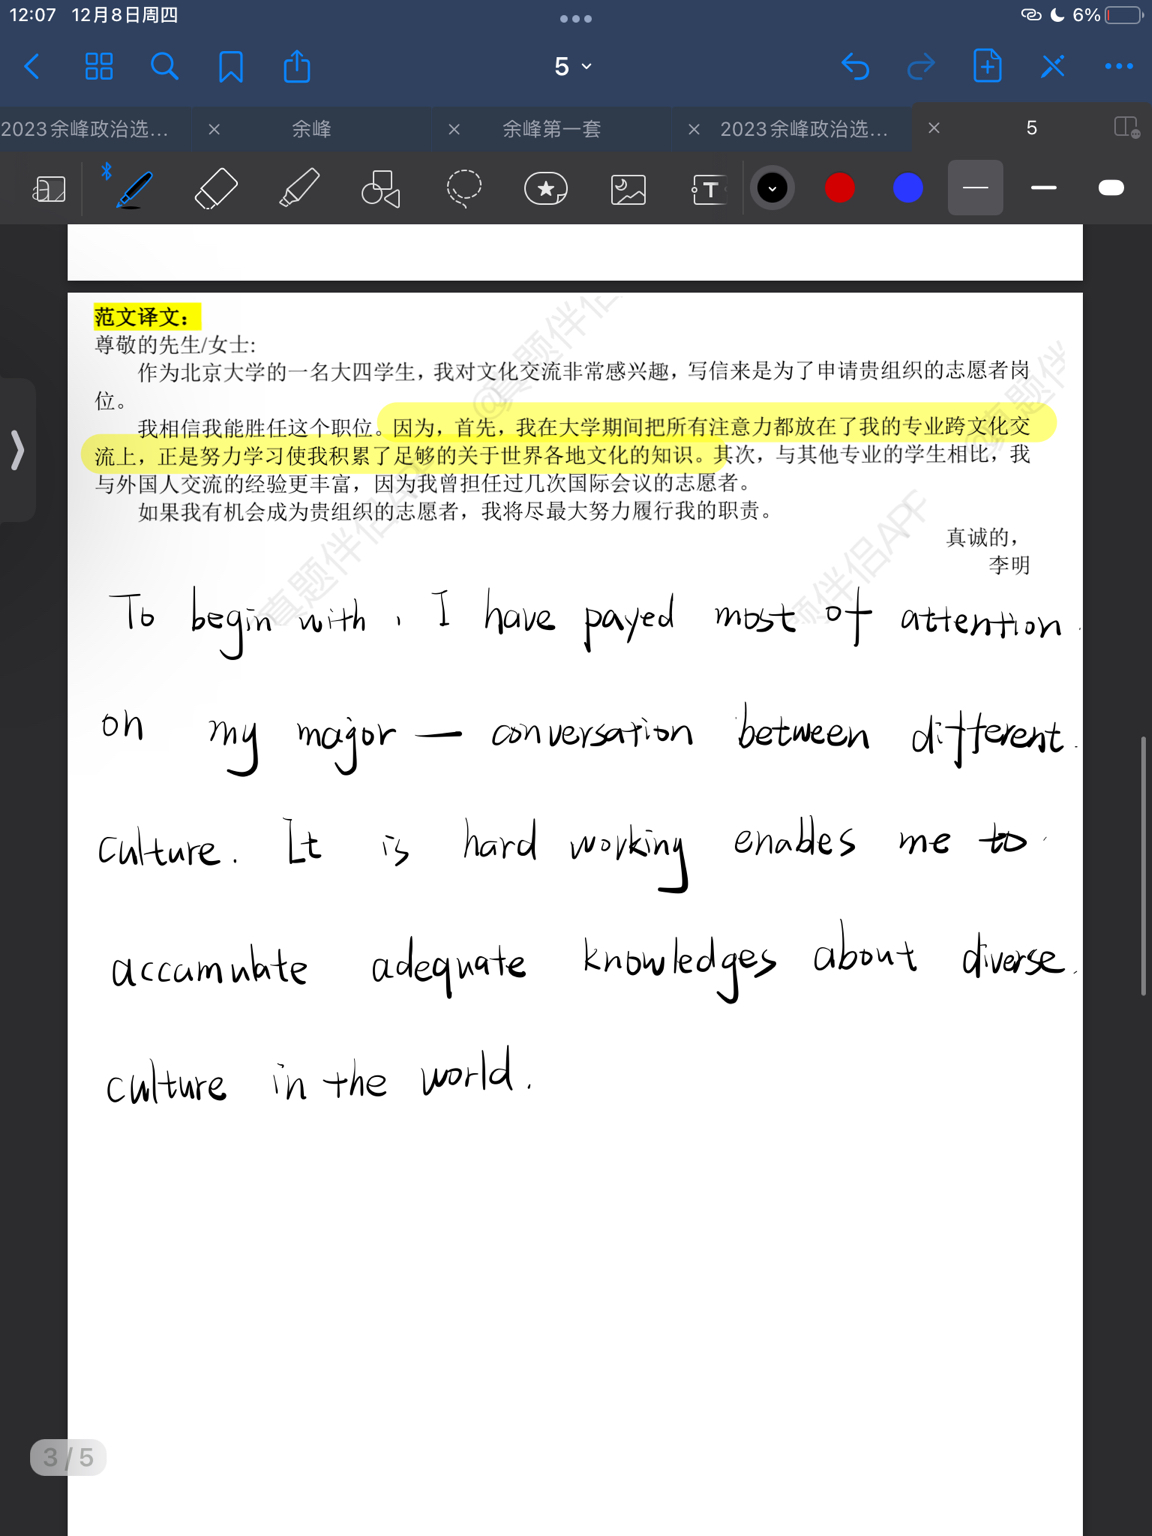 12:07 12月8日周四 6%
5
2023余峰政治选... 余峰 余峰第一套 2023余峰政治选... 5
T
范文译文：
尊敬的先生/女士:
作为北京大学的一名大四学生，我对文化交流非常感兴趣，写信来是为了申请贵组织的志愿者岗
位。
我相信我能胜任这个职位。因为，首先，我在大学期间把所有注意力都放在了我的专业跨文化交
流上，正是努力学习使我积累了足够的关于世界各地文化的知识。其次，与其他专业的学生相比，我
与外国人交流的经验更丰富，因为我曾担任过几次国际会议的志愿者。
如果我有机会成为贵组织的志愿者，我将尽最大努力履行我的职责。
真诚的，
李明
@真题伴侣
真题伴侣
真题伴侣
题伴侣APP
To begin with, I have payed most of attention
on my major — conversation between different
culture. It is hard working enables me to
accamulate adequate knowledges about diverse
culture in the world.
3 / 5